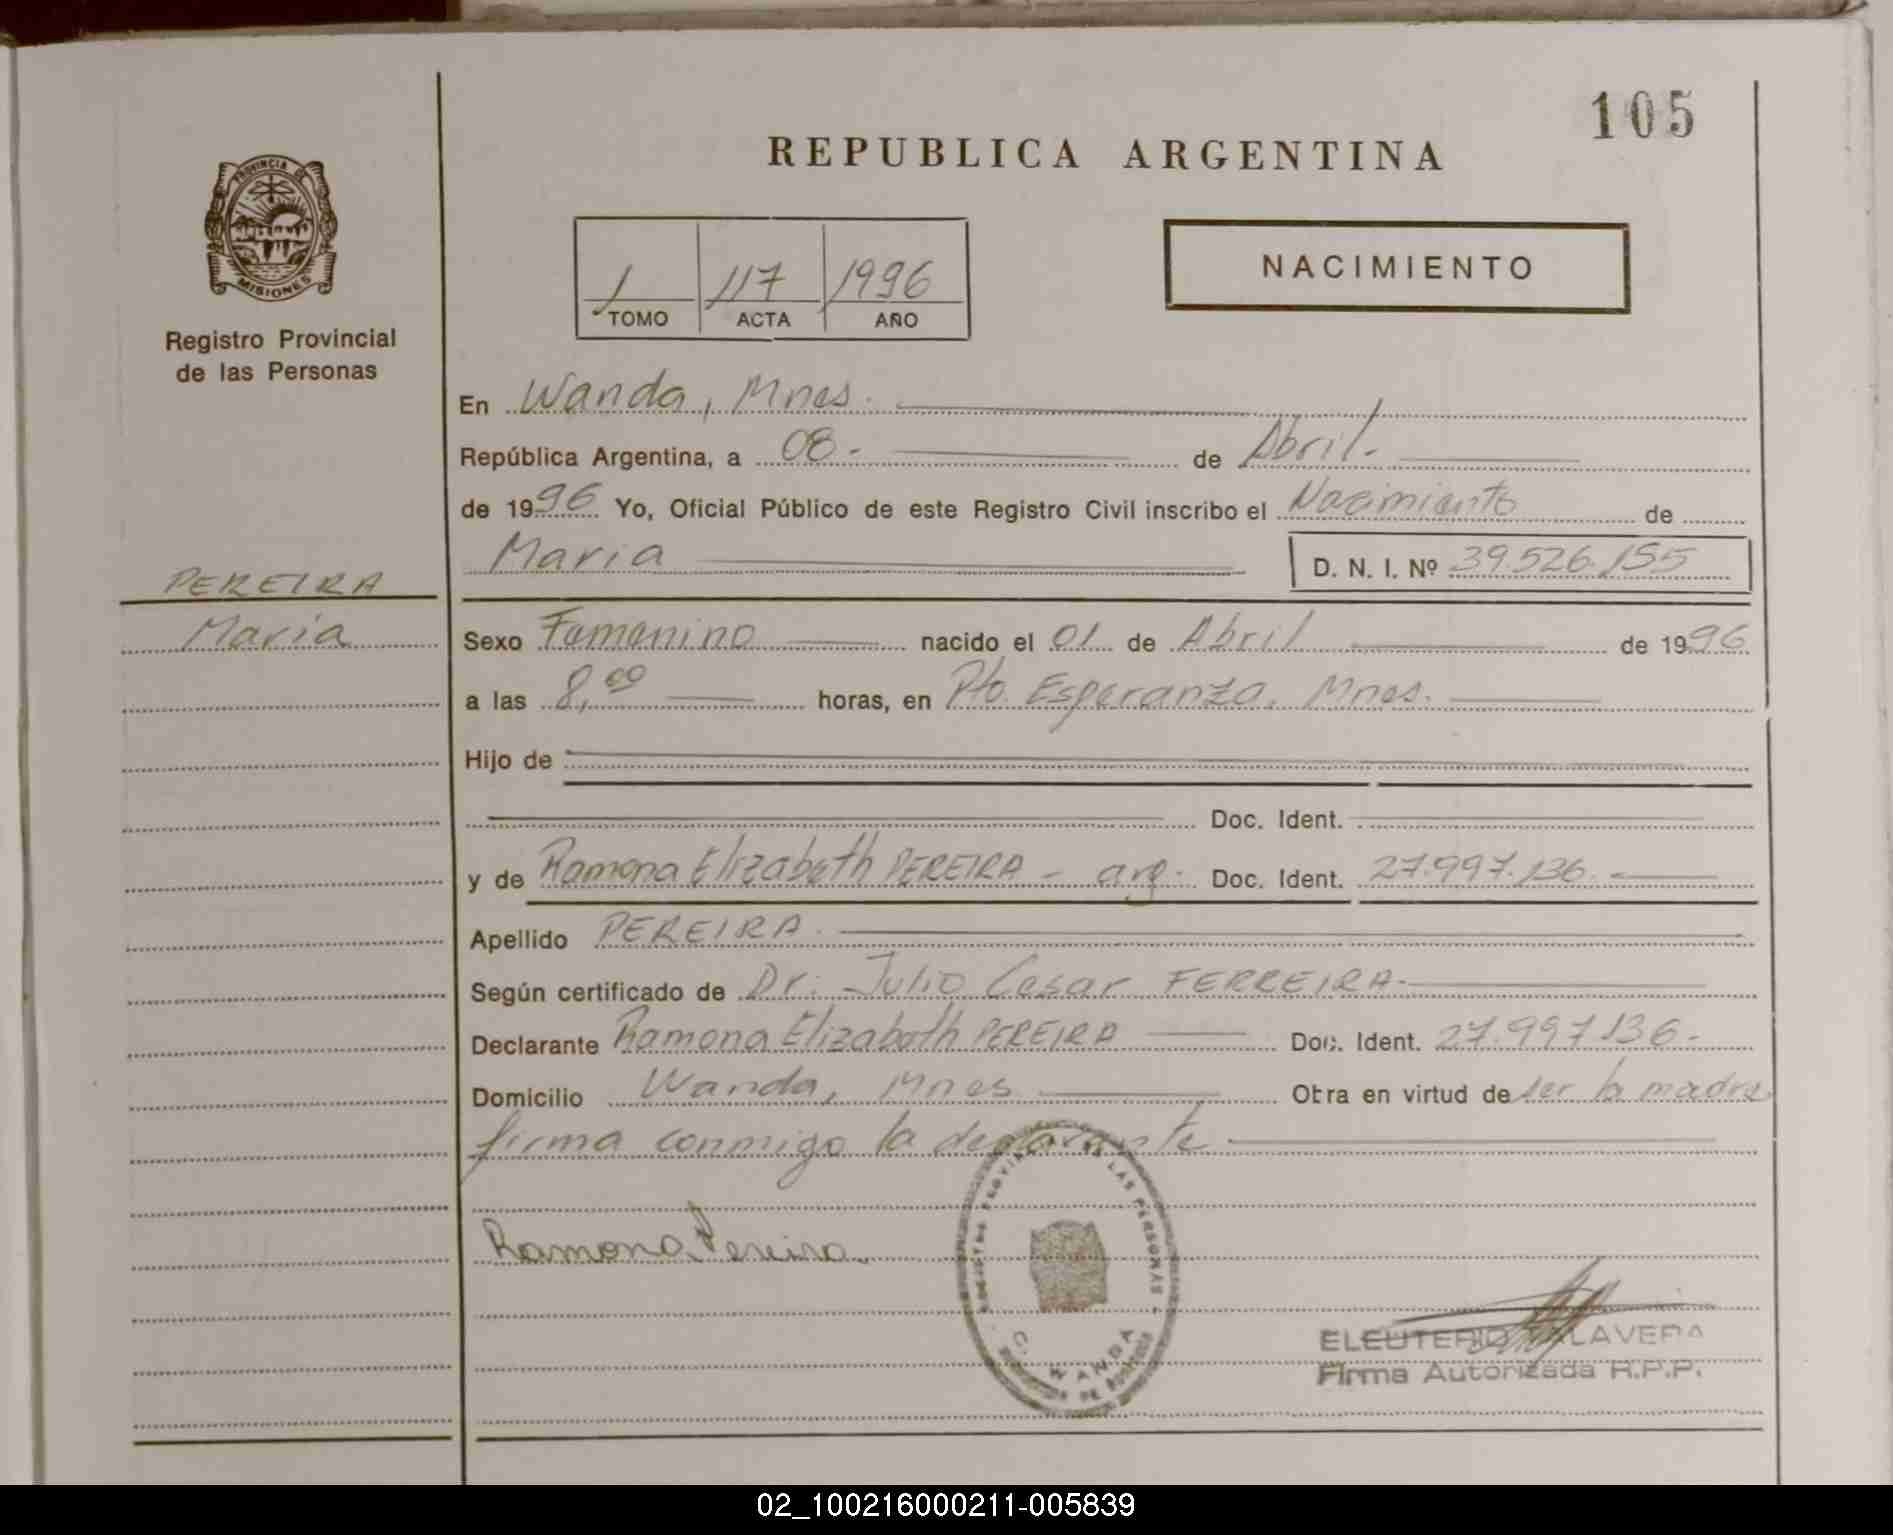 105
REPUBLICA ARGENTINA
PROVINCIA DE
MISIONES
Registro Provincial
de las Personas
1 117 1996
TOMO ACTA AÑO
NACIMIENTO
En Wanda, Mnes.
República Argentina, a 08.- de Abril.-
de 1996 Yo, Oficial Público de este Registro Civil inscribo el Nacimiento de
Maria D. N. I. Nº 39.526.155
PEREIRA
Maria
Sexo Femenino nacido el 01 de Abril de 1996
a las 8,00 horas, en Pto. Esperanza, Mnes.
Hijo de
Doc. Ident.
y de Ramona Elizabeth PEREIRA - arg. Doc. Ident. 27.997.136.-
Apellido PEREIRA.
Según certificado de Dr. Julio Cesar FERREIRA.-
Declarante Ramona Elizabeth PEREIRA Doc. Ident. 27.997.136.-
Domicilio Wanda, Mnes Otra en virtud de ser la madre
firma conmigo la declarante
Ramona Pereira
PROVINCIAL DE LAS PERSONAS
WANDA
ELEUTERIO TALAVERA
Firma Autorizada R.P.P.
02_100216000211-005839